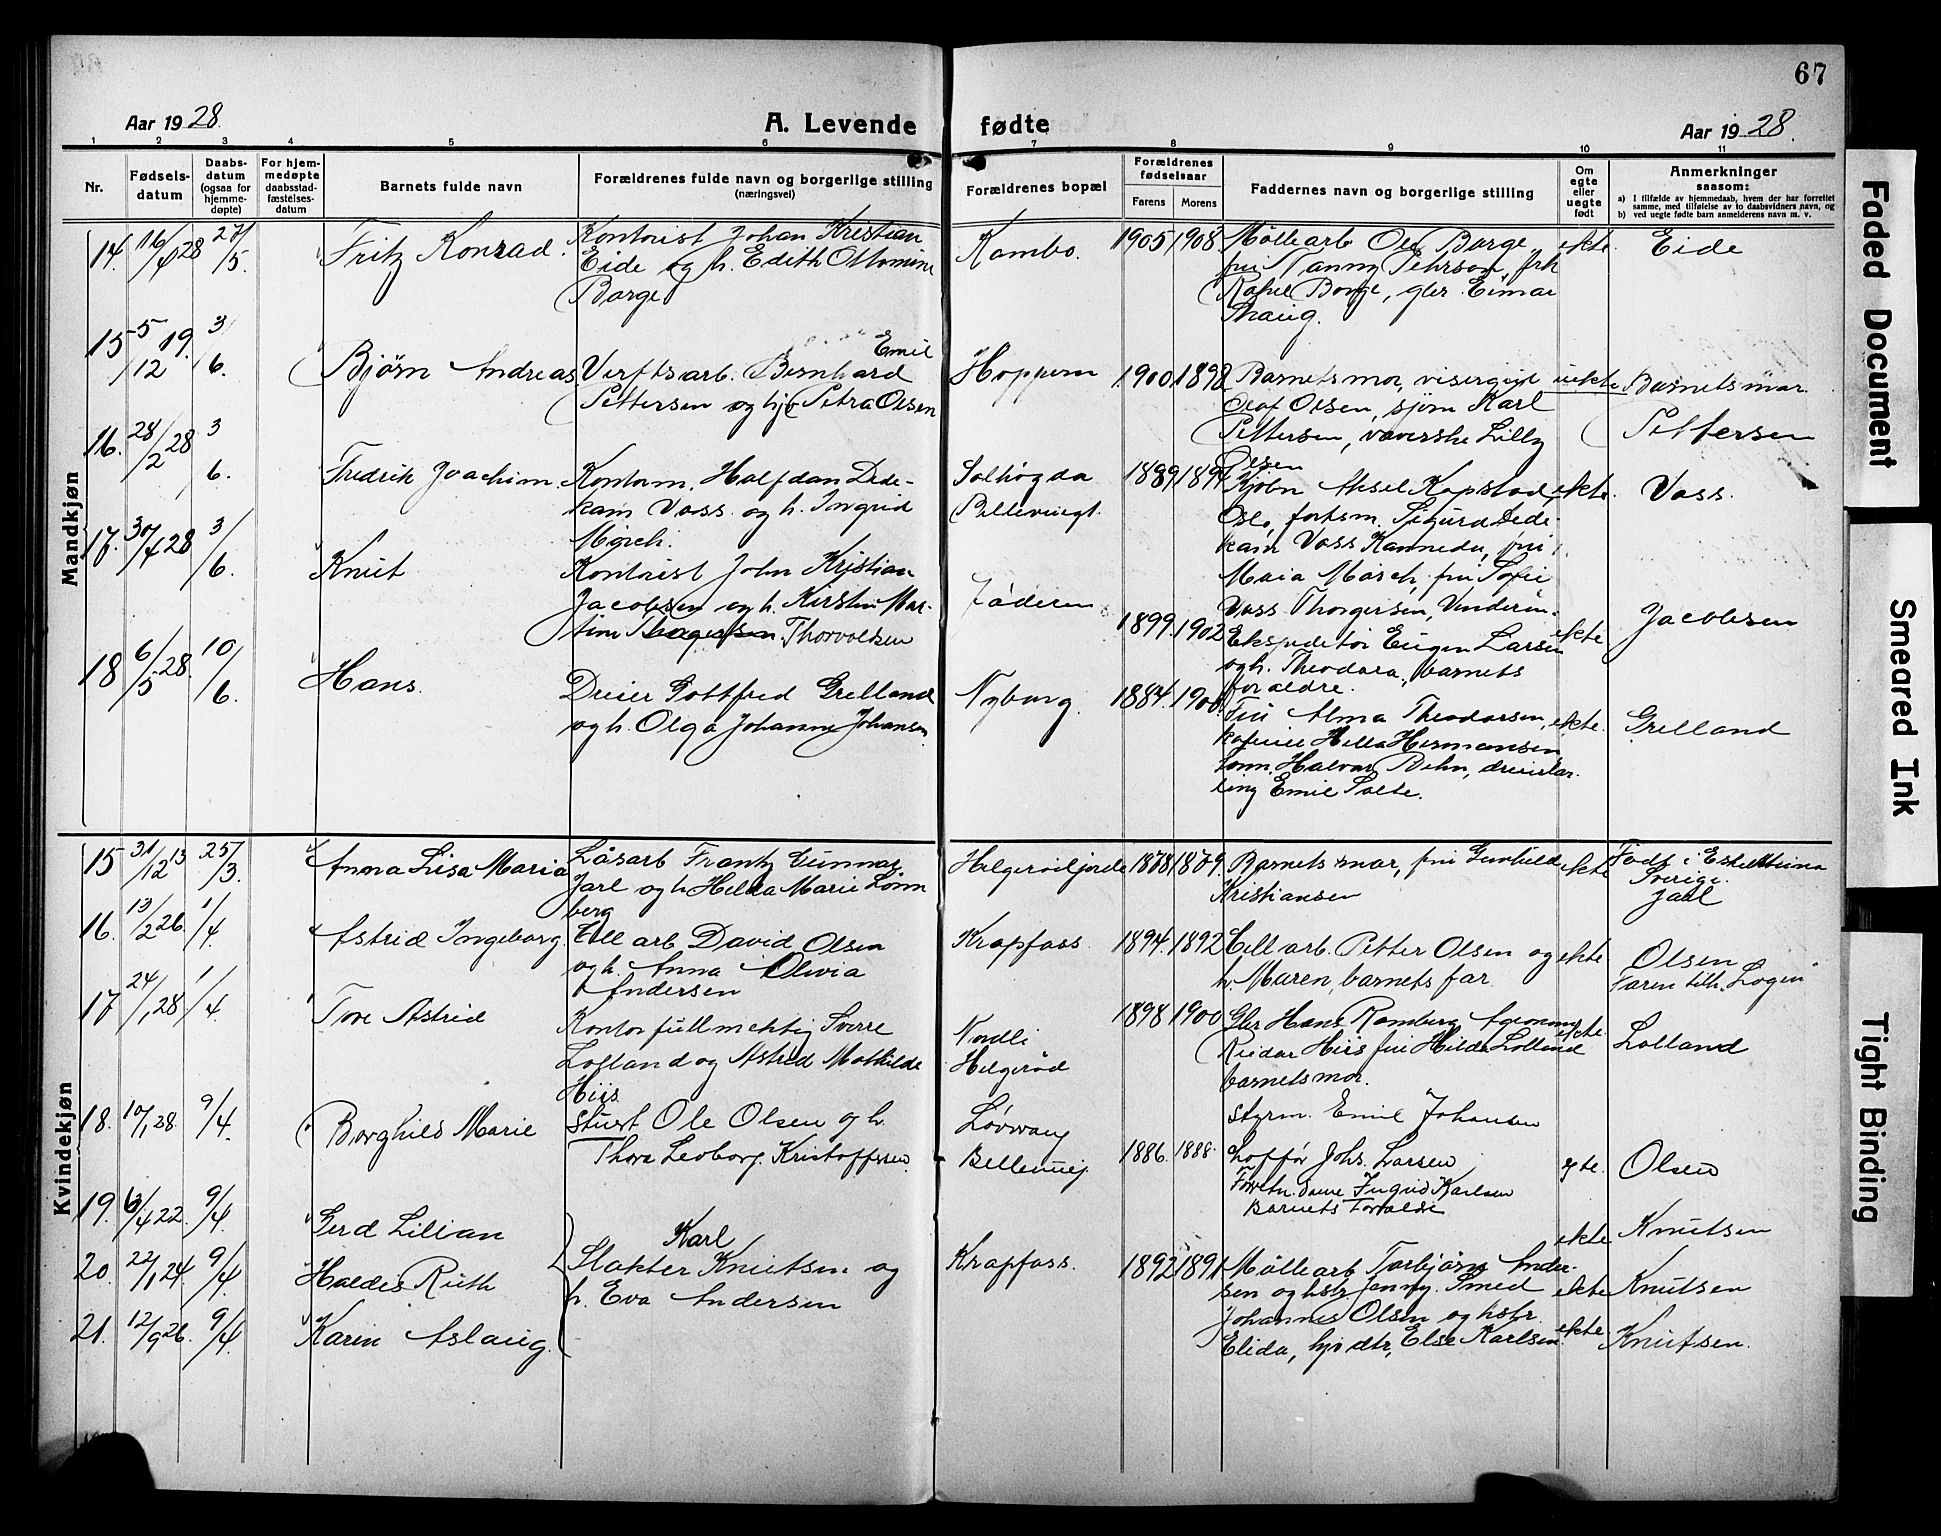 67
Aar 1928.
A. Levende
fødte
Aar 1928.
1 2 3 4 5 6 7 8 9 10 11
Nr.
Fødsels-
datum
Daabs-
datum
(ogsaa for
hjemme-
døpte)
For hjem-
medøpte
daabsstad-
fæstelses-
datum
Barnets fulde navn
Forældrenes fulde navn og borgerlige stilling
(næringsvei)
Forældrenes bopæl
Forældrenes
fødselsaar
Farens
Morens
Faddernes navn og borgerlige stilling
Om
egte
eller
uegte
født
Anmerkninger
saasom:
a) I tilfælde av hjemmedaab, hvem der har forrettet
samme, med tilføielse av to daabsvidners navn, og
b) ved uegte fødte barn anmelderens navn m. v.
Mandkjøn
14. 16/4 28 27/5. Fritz Konrad.
Kontorist Johan Kristian
Eide og h. Edith Ottomine
Borge
Kambo. 1905 1908.
Møllearb Ole Borge,
fru Nanny Pehrson, frk
Borge, gbr. Eimar
Skaug.
ekte. Eide
15 5/12 19. 3/6. Bjørn Andreas
Emil
Verftsarb. Bernhard
Pettersen og hj Petra Olsen
Hoppern 1900 1898
Barnets mor, visergut
Olaf Olsen, sjøm Karl
Pettersen, væverske Lilly
Olsen
uekte Barnets mor.
Pettersen
16. 28/2 28 3/6. Fredrik Joachim.
Kontorm. Halfdan Dede-
kam Voss og h. Ingrid
Mørch.
Solhøgda
Bellevuegt.
1889 1894
Kjøbm Aksel Kopstad
Oslo, forism. Sigurd Dede-
kam Voss Kanneda, fru
Maia Mørch, fru Sofie
Voss Thorgersen, Vinderen.
ekte. Voss.
17. 30/4 28 3/6. Knut
Kontorist John Kristian
Jacobsen og h. Kirsten Mar-
tine Thorvaldsen
Jøderen 1899. 1902
Ekspeditør Eugen Larsen
og h. Theodora, barnets
forældre.
ekte Jacobsen
18 6/5 28. 10/6. Hans.
Dreier Gottfred Grelland
og h. Olga Johanne Johansen
Nyborg. 1884. 1900.
Fru Alma Theodorsen,
Hella Hermansen
Halvor Behn, dreierlær-
ling Emil Solte.
ekte. Grelland
Kvindekjøn
15 31/12 13 25/3. Anna Lisa Maria
Låsarb Frantz Gunnar
Jarl og h Hilda Marie Lönn
berg
Helgerødfjorde 1878 1879.
Barnets mor, fru Gunhild
Kristiansen
ekte
Født i Eskilstuna
Sverige.
Jarl
16. 13/2 26. 1/4. Astrid Ingeborg.
Cell arb David Olsen
og h. Anna Olivia
Andersen
Krapfoss. 1894. 1892
Cell arb. Petter Olsen og
h. Maren, barnets far.
ekte Olsen
Faren tilh. "Logen"
17 24/1 28 1/4. Tove Astrid
Kontorfullmektig Sverre
Lolland og Astrid Mathilde
Hiis
Nordli
Helgerød
1898 1900
Gbr Hans Ramberg Agronom
Reidar Hiis fru Hilda Lolland
barnets mor.
ekte. Lolland
18. 10/1 28. 9/4. Borghild Marie
Stuert Ole Olsen og h.
Thora Leoborg. Kristoffersen
Løvvang
Bellevuej
1886. 1888.
Styrm. Emil Johansen
Loffør Johs. Larsen
Forretn. dame Ingrid Karlsen
Barnets Forælde
egte. Olsen
19. 6/4 22. 9/4. Gerd Lillian
20. 22/1 24. 9/4. Haldis Ruth
21. 12/9 26. 9/4. Karin Aslaug.
Karl
Slakter Knutsen og
h. Eva Andersen
Krapfoss. 1892 1891
Møllearb Torbjørn Ander-
sen og hstr. Jenny. Smed
Johannes Olsen og hstr.
Elida, hjv dtr, Else Karlsen.
ekte Knutsen
ekte Knutsen
ekte Knutsen.
Faded Document
Smeared Ink
Tight Binding